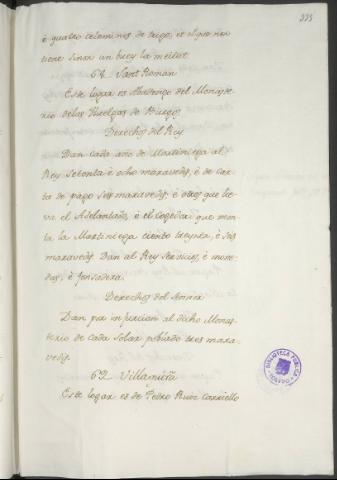 335
è quatro celemines de trigo, et el que non
tiene sinon un buey la meitat.
61 Sant Roman
Este logar es Abadengo del Monaste-
rio de las Huelgas de Burgos.
Derechos del Rey
Dan cada año de Martiniega al
Rey Setenta è ocho maravedis; è de car-
ta de pago Seis maravedis; è otros que lie-
va el Adelantado, è el cogedor que mon-
ta la Martiniega ciento treynta, è Seis
maravedis. Dan al Rey Servicios, è mone-
das, è fonsadera.
Derechos del Sennor
Dan por infurcion al dicho Monas-
terio de cada Solar poblado tres mara-
vedis.
62 Villaquirà
Este logar es de Pedro Ruiz Carriello
BIBLIOTECA PUBLICA
TOLEDO